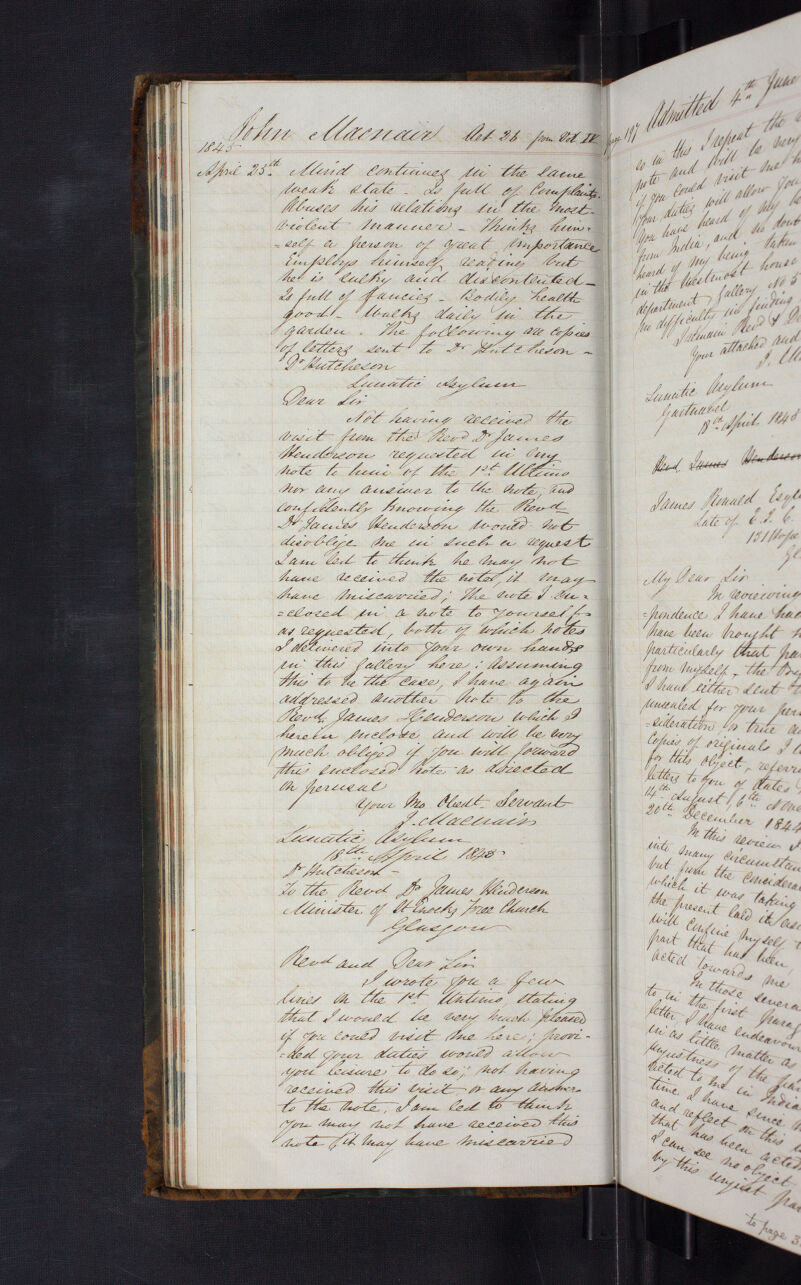 John Macnair Aet 26 from Vol IV page 197 Admitted 4th June
1845
April 25th Mind continues in the same
weak state - Is full of Complaints.
Abuses his relations in the most
violent manner - Thinks him-
=self a person of great importance
Employs himself reading but
he is sulky and discontented -
Is full of fancies - Bodily health
good - Walks daily in the
garden. The following are copies
of letters sent to Dr Hutcheson -
Dr Hutcheson
Lunatic Asylum
Dear Sir
Not having received the
visit from the Revd Dr James
Henderson requested in my
note to him of the 1st Ultimo
nor any answer to the note, and
confidently knowing the Revd
Dr James Henderson would not
disoblige me in such a request
I am led to think he may not
have received the note, it may
have miscarried; the note I en-
=closed in a note to yourself
as requested, both of which notes
I delivered into your own hands
in this gallery here; assuming
this to be the case, I have again
addressed another note to the
Revd James Henderson which I
herein enclose and will be very
much obliged if you will forward
this enclosed note as directed
on perusal
Your Mo Obedt Servant
J. Macnair
Lunatic Asylum
18th April 1845
Dr Hutcheson -
To the Revd Dr James Henderson
Minister of St Enochs Free Church
Glasgow
Revd and Dear Sir
I wrote you a few
lines on the 1st Ultimo, stating
that I would be very much pleased
if you could visit me here; provi-
=ded your duties would allow
you leisure to do so; not having
received this visit or any answer
to the note, I am led to think
you may not have received this
note (it may have miscarried
so in this I repeat the
note and will be very
if you could visit me h
your duties will allow you
you have heard of my
from India, and no dout
heard of my being taken
in the Westmost house
department gallery No 5
no difficulty in finding
I remain Revd & D
Your attached and
J. M
Lunatic Asylum
Gartnavel
18th April 1845
Revd James Henderson
James Ronald Esqr
Late of E. I. C.
151 Hope
Gl
My Dear Sir
In reviewing
=pondence I have had
have been brought
particularly that pa
from myself - the
I have either sent t
unsealed for your per
=sideration or true
Copies of originals I
for this object, referr
letters to you of dates
14th August, 6th Nove
20th December 1844
In this review I
into many circumstan
but from the considera
which it was taking
the present laid it asi
will confine myself t
part that has been
acted towards me
In those severa
to, in the first parag
letter, I have endeavour
in as little matter as
unjustness of the
acted to me in India
time I have since
and reflect on this
that has been acted
I can see no object
by this unjust pa
to page 3